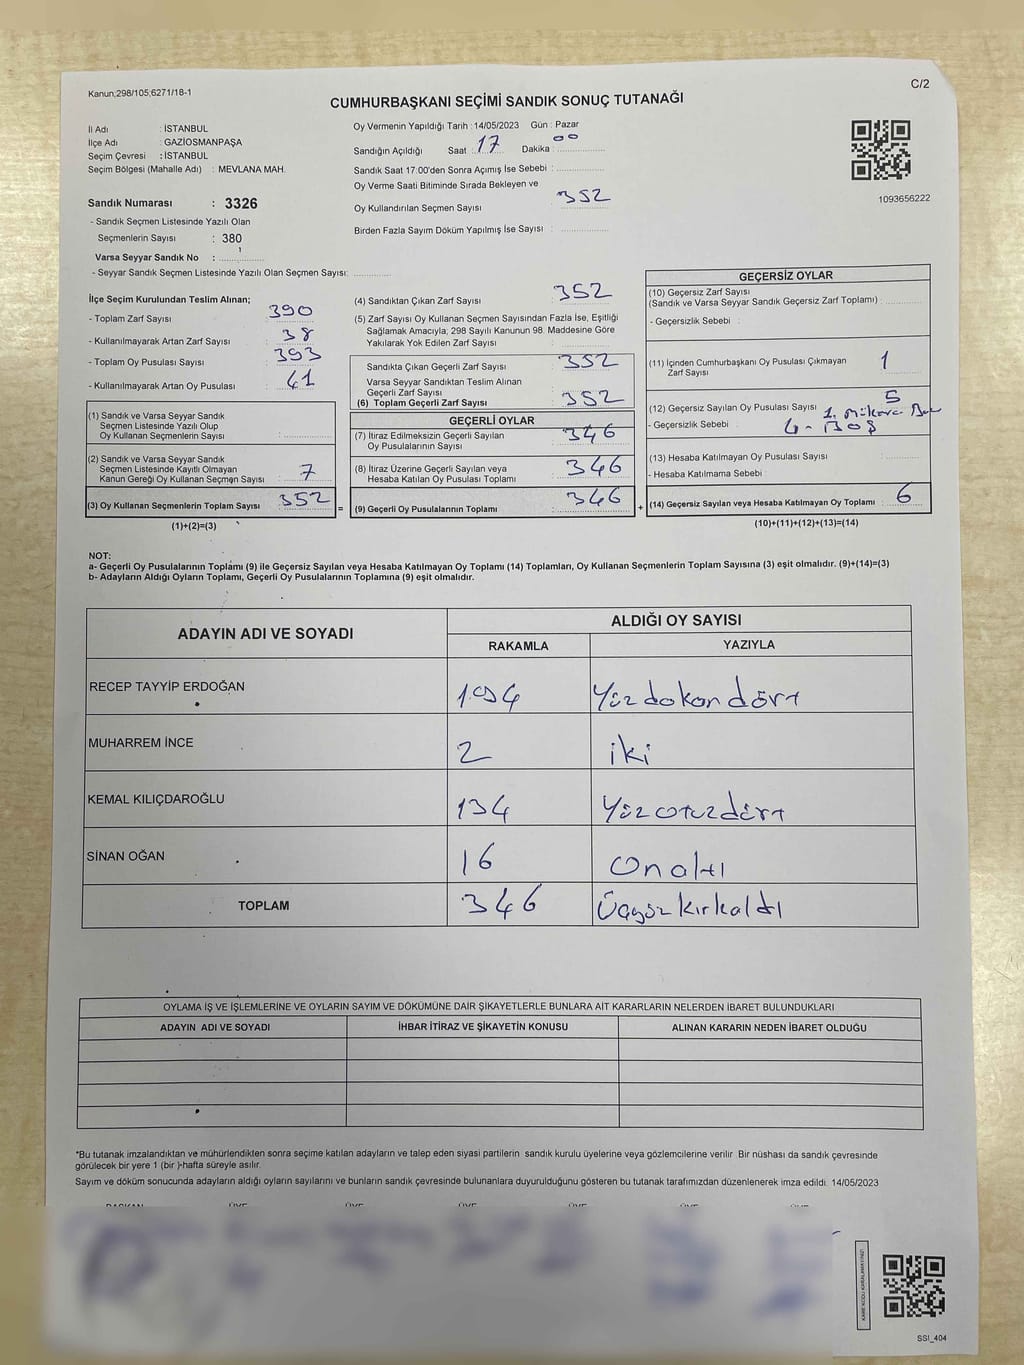 Kanun;298/105;6271/18-1
C/2
CUMHURBAŞKANI SEÇİMİ SANDIK SONUÇ TUTANAĞI
İl Adı : İSTANBUL
İlçe Adı : GAZİOSMANPAŞA
Seçim Çevresi : İSTANBUL
Seçim Bölgesi (Mahalle Adı) : MEVLANA MAH.
Sandık Numarası : 3326
- Sandık Seçmen Listesinde Yazılı Olan
Seçmenlerin Sayısı : 380
Varsa Seyyar Sandık No : 1
- Seyyar Sandık Seçmen Listesinde Yazılı Olan Seçmen Sayısı:
Oy Vermenin Yapıldığı Tarih : 14/05/2023 Gün : Pazar
Sandığın Açıldığı Saat : 17 Dakika : 00
Sandık Saat 17:00'den Sonra Açımış İse Sebebi :
Oy Verme Saati Bitiminde Sırada Bekleyen ve
Oy Kullandırılan Seçmen Sayısı : 352
Birden Fazla Sayım Döküm Yapılmış İse Sayısı :
1093656222
İlçe Seçim Kurulundan Teslim Alınan;
- Toplam Zarf Sayısı : 390
- Kullanılmayarak Artan Zarf Sayısı : 38
- Toplam Oy Pusulası Sayısı : 393
- Kullanılmayarak Artan Oy Pusulası : 41
(1) Sandık ve Varsa Seyyar Sandık
Seçmen Listesinde Yazılı Olup
Oy Kullanan Seçmenlerin Sayısı :
(2) Sandık ve Varsa Seyyar Sandık
Seçmen Listesinde Kayıtlı Olmayan
Kanun Gereği Oy Kullanan Seçmen Sayısı : 7
(3) Oy Kullanan Seçmenlerin Toplam Sayısı : 352
(1)+(2)=(3)
(4) Sandıktan Çıkan Zarf Sayısı : 352
(5) Zarf Sayısı Oy Kullanan Seçmen Sayısından Fazla İse, Eşitliği
Sağlamak Amacıyla; 298 Sayılı Kanunun 98. Maddesine Göre
Yakılarak Yok Edilen Zarf Sayısı :
Sandıkta Çıkan Geçerli Zarf Sayısı : 352
Varsa Seyyar Sandıktan Teslim Alınan
Geçerli Zarf Sayısı :
(6) Toplam Geçerli Zarf Sayısı : 352
GEÇERLİ OYLAR
(7) İtiraz Edilmeksizin Geçerli Sayılan
Oy Pusulasının Sayısı : 346
(8) İtiraz Üzerine Geçerli Sayılan veya
Hesaba Katılan Oy Pusulası Toplamı : 346
= (9) Geçerli Oy Pusulalarının Toplamı : 346 +
GEÇERSİZ OYLAR
(10) Geçersiz Zarf Sayısı
(Sandık ve Varsa Seyyar Sandık Geçersiz Zarf Toplamı) :
- Geçersizlik Sebebi :
(11) İçinden Cumhurbaşkanı Oy Pusulası Çıkmayan
Zarf Sayısı : 1
(12) Geçersiz Sayılan Oy Pusulası Sayısı : 5
- Geçersizlik Sebebi : 4-Boş
(13) Hesaba Katılmayan Oy Pusulası Sayısı :
- Hesaba Katılmama Sebebi :
(14) Geçersiz Sayılan veya Hesaba Katılmayan Oy Toplamı : 6
(10)+(11)+(12)+(13)=(14)
NOT:
a- Geçerli Oy Pusulalarının Toplamı (9) ile Geçersiz Sayılan veya Hesaba Katılmayan Oy Toplamı (14) Toplamları, Oy Kullanan Seçmenlerin Toplam Sayısına (3) eşit olmalıdır. (9)+(14)=(3)
b- Adayların Aldığı Oyların Toplamı, Geçerli Oy Pusulalarının Toplamına (9) eşit olmalıdır.
ADAYIN ADI VE SOYADI
ALDIĞI OY SAYISI
RAKAMLA YAZIYLA
RECEP TAYYİP ERDOĞAN 194 Yüzdoksandört
MUHARREM İNCE 2 iki
KEMAL KILIÇDAROĞLU 134 Yüzotuzdört
SİNAN OĞAN 16 Onaltı
TOPLAM 346 Üçyüzkırkaltı
OYLAMA İŞ VE İŞLEMLERİNE VE OYLARIN SAYIM VE DÖKÜMÜNE DAİR ŞİKAYETLERLE BUNLARA AİT KARARLARIN NELERDEN İBARET BULUNDUKLARI
ADAYIN ADI VE SOYADI İHBAR İTİRAZ VE ŞİKAYETİN KONUSU ALINAN KARARIN NEDEN İBARET OLDUĞU
*Bu tutanak imzalandıktan ve mühürlendikten sonra seçime katılan adayların ve talep eden siyasi partilerin sandık kurulu üyelerine veya gözlemcilerine verilir. Bir nüshası da sandık çevresinde
görülecek bir yere 1 (bir )-hafta süreyle asılır.
Sayım ve döküm sonucunda adayların aldığı oyların sayılarını ve bunların sandık çevresinde bulunanlara duyurulduğunu gösteren bu tutanak tarafımızdan düzenlenerek imza edildi. 14/05/2023
BAŞKAN ÜYE ÜYE ÜYE ÜYE ÜYE ÜYE
KARE KODU KARALAMAYINIZ!
SSI_404